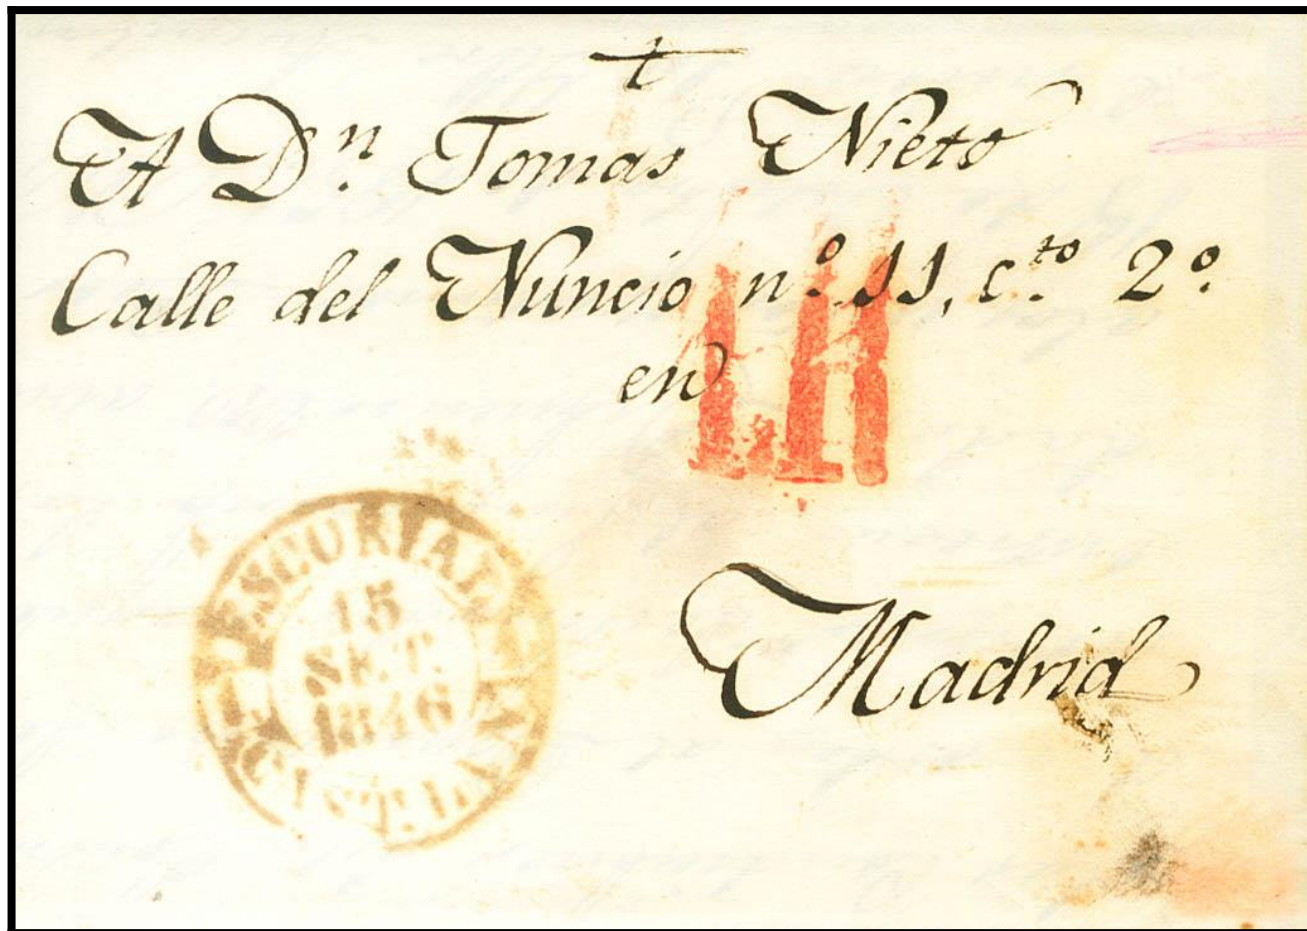 A Dn. Tomas Nieto
Calle del Nuncio nº. 11, cto. 2º.
en
Madrid
ESCORIAL
15
SET.
1846
CAST. LA N.